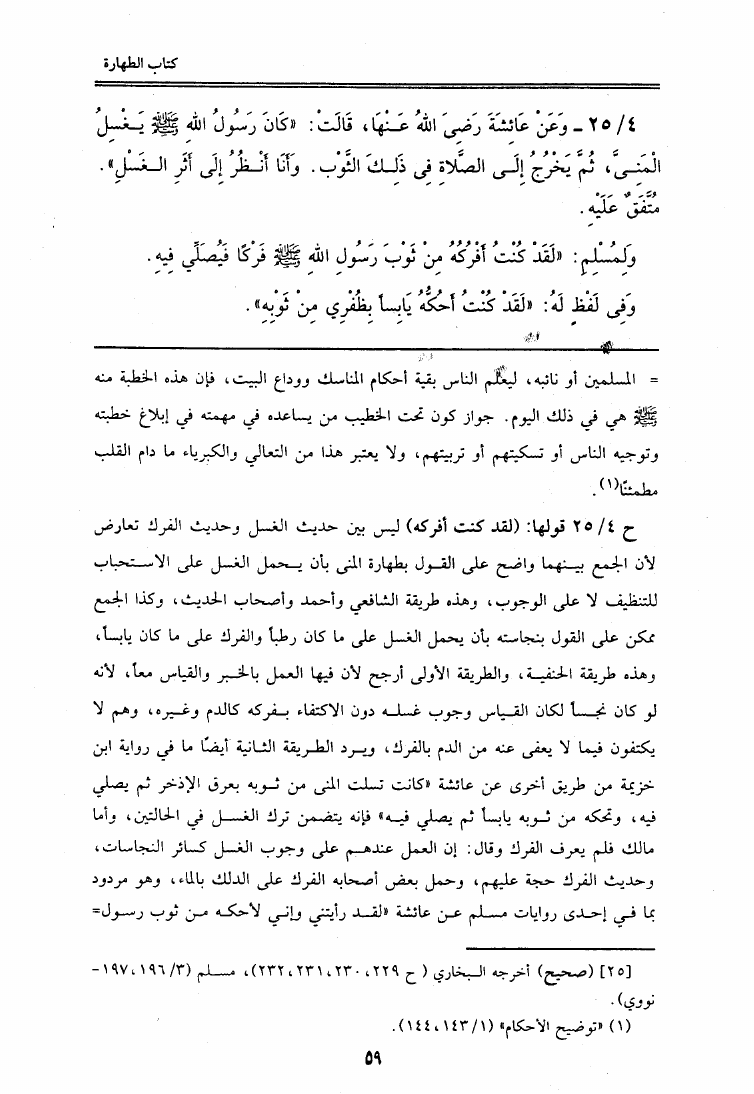 كتاب الطهارة
٢٥/٤ ـ وَعَنْ عَائِشَةَ رَضِىَ اللهُ عَـنْهَا، قَالَتْ: «كَانَ رَسُولُ اللهِ ﷺ يَـغْسِلُ
الْمَنِـىَّ، ثُمَّ يَخْرُجُ إِلَـى الصَّلَاةِ فِى ذَلِـكَ الثَّوْبِ. وَأَنَا أَنْـظُرُ إِلَى أَثَرِ الـغَسْلِ».
مُتَّفَقٌ عَلَيْهِ.
وَلِمُسْلِمٍ: «لَقَدْ كُنْتُ أَفْرُكُهُ مِنْ ثَوْبِ رَسُولِ اللهِ ﷺ فَرْكًا فَيُصَلِّي فِيهِ.
وَفِى لَفْظٍ لَهُ: «لَقَدْ كُنْتُ أَحُكُّهُ يَابِساً بِظُفْرِي مِنْ ثَوْبِهِ».
= المسلمين أو نائبه، ليعلم الناس بقية أحكام المناسك ووداع البيت، فإن هذه الخطبة منه
ﷺ هي في ذلك اليوم. جواز كون تحت الخطيب من يساعده في مهمته في إبلاغ خطبته
وتوجيه الناس أو تسكيتهم أو تربيتهم، ولا يعتبر هذا من التعالي والكبرياء ما دام القلب
مطمئنًا(١).
ح ٢٥/٤ قولها: (لقد كنت أفركه) ليس بين حديث الغسل وحديث الفرك تعارض
لأن الجمع بيـنهما واضح على القـول بطهارة المنى بأن يـحمل الغسل على الاسـتحباب
للتنظيف لا على الوجوب، وهذه طريقة الشافعي وأحمد وأصحاب الحديث، وكذا الجمع
ممكن على القول بنجاسته بأن يحمل الغسل على ما كان رطباً والفرك على ما كان يابساً،
وهذه طريقة الحنفيـة، والطريقة الأولى أرجح لأن فيها العمل بالخبر والقياس معاً، لأنه
لو كان نجسـاً لكان القـياس وجوب غسلـه دون الاكتفاء بـفركه كالدم وغـيره، وهم لا
يكتفون فيما لا يعفى عنه من الدم بالفرك، ويـرد الطريقة الثانية أيضًا ما في رواية ابن
خزيمة من طريق أخرى عن عائشة «كانت تسلت المنى من ثـوبه بعرق الإذخر ثم يصلي
فيه، وتحكه من ثـوبه يابساً ثم يصلي فيـه» فإنه يتضمن ترك الغسـل في الحالتين، وأما
مالك فلم يعرف الفرك وقال: إن العمل عندهـم على وجوب الغسل كسائر النجاسات،
وحديث الفرك حجة عليهم، وحمل بعض أصحابه الفرك على الدلك بالماء، وهو مردود
بما فـي إحـدى روايات مسلم عـن عائشة «لقـد رأيتني وإنـي لأحكـه مـن ثوب رسول=
[٢٥] (صحيح) أخرجه الـبخاري ( ح ٢٢٩، ٢٣٠، ٢٣١، ٢٣٢)، مسلـم (١٩٦/٣، ١٩٧-
نووي).
(١) «توضيح الأحكام» (١/ ١٤٣، ١٤٤).
٥٩